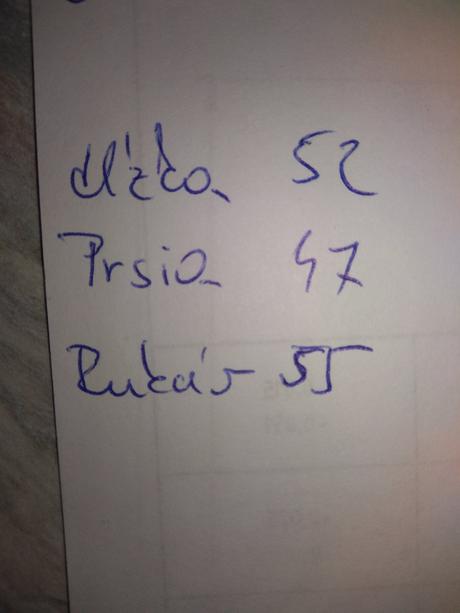 dĺžka 52
Prsia 47
Rukáv 55